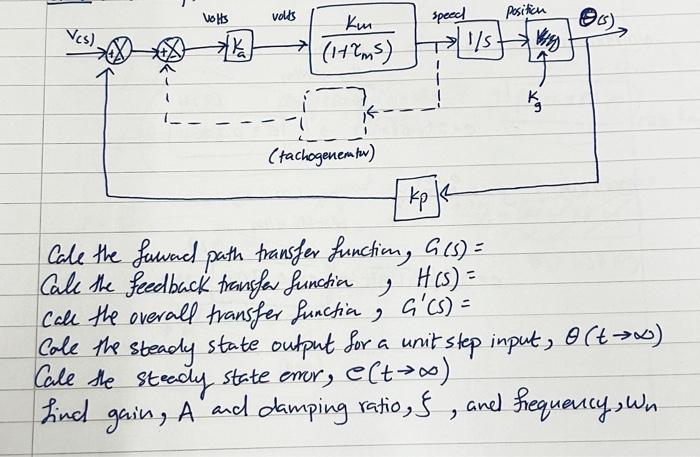 Volts volts speed position θ(s)
V(s) + - + - Ka Km 1/s
(1+τmS)
Kg
(tachogenerator)
Kp
Calc the forward path transfer function, G(s) =
Calc the feedback transfer function , H(s) =
Calc the overall transfer function , G'(s) =
Calc the steady state output for a unit step input, θ(t→∞)
Calc the steady state error, e(t→∞)
find gain, A and damping ratio, ξ , and frequency, Wn